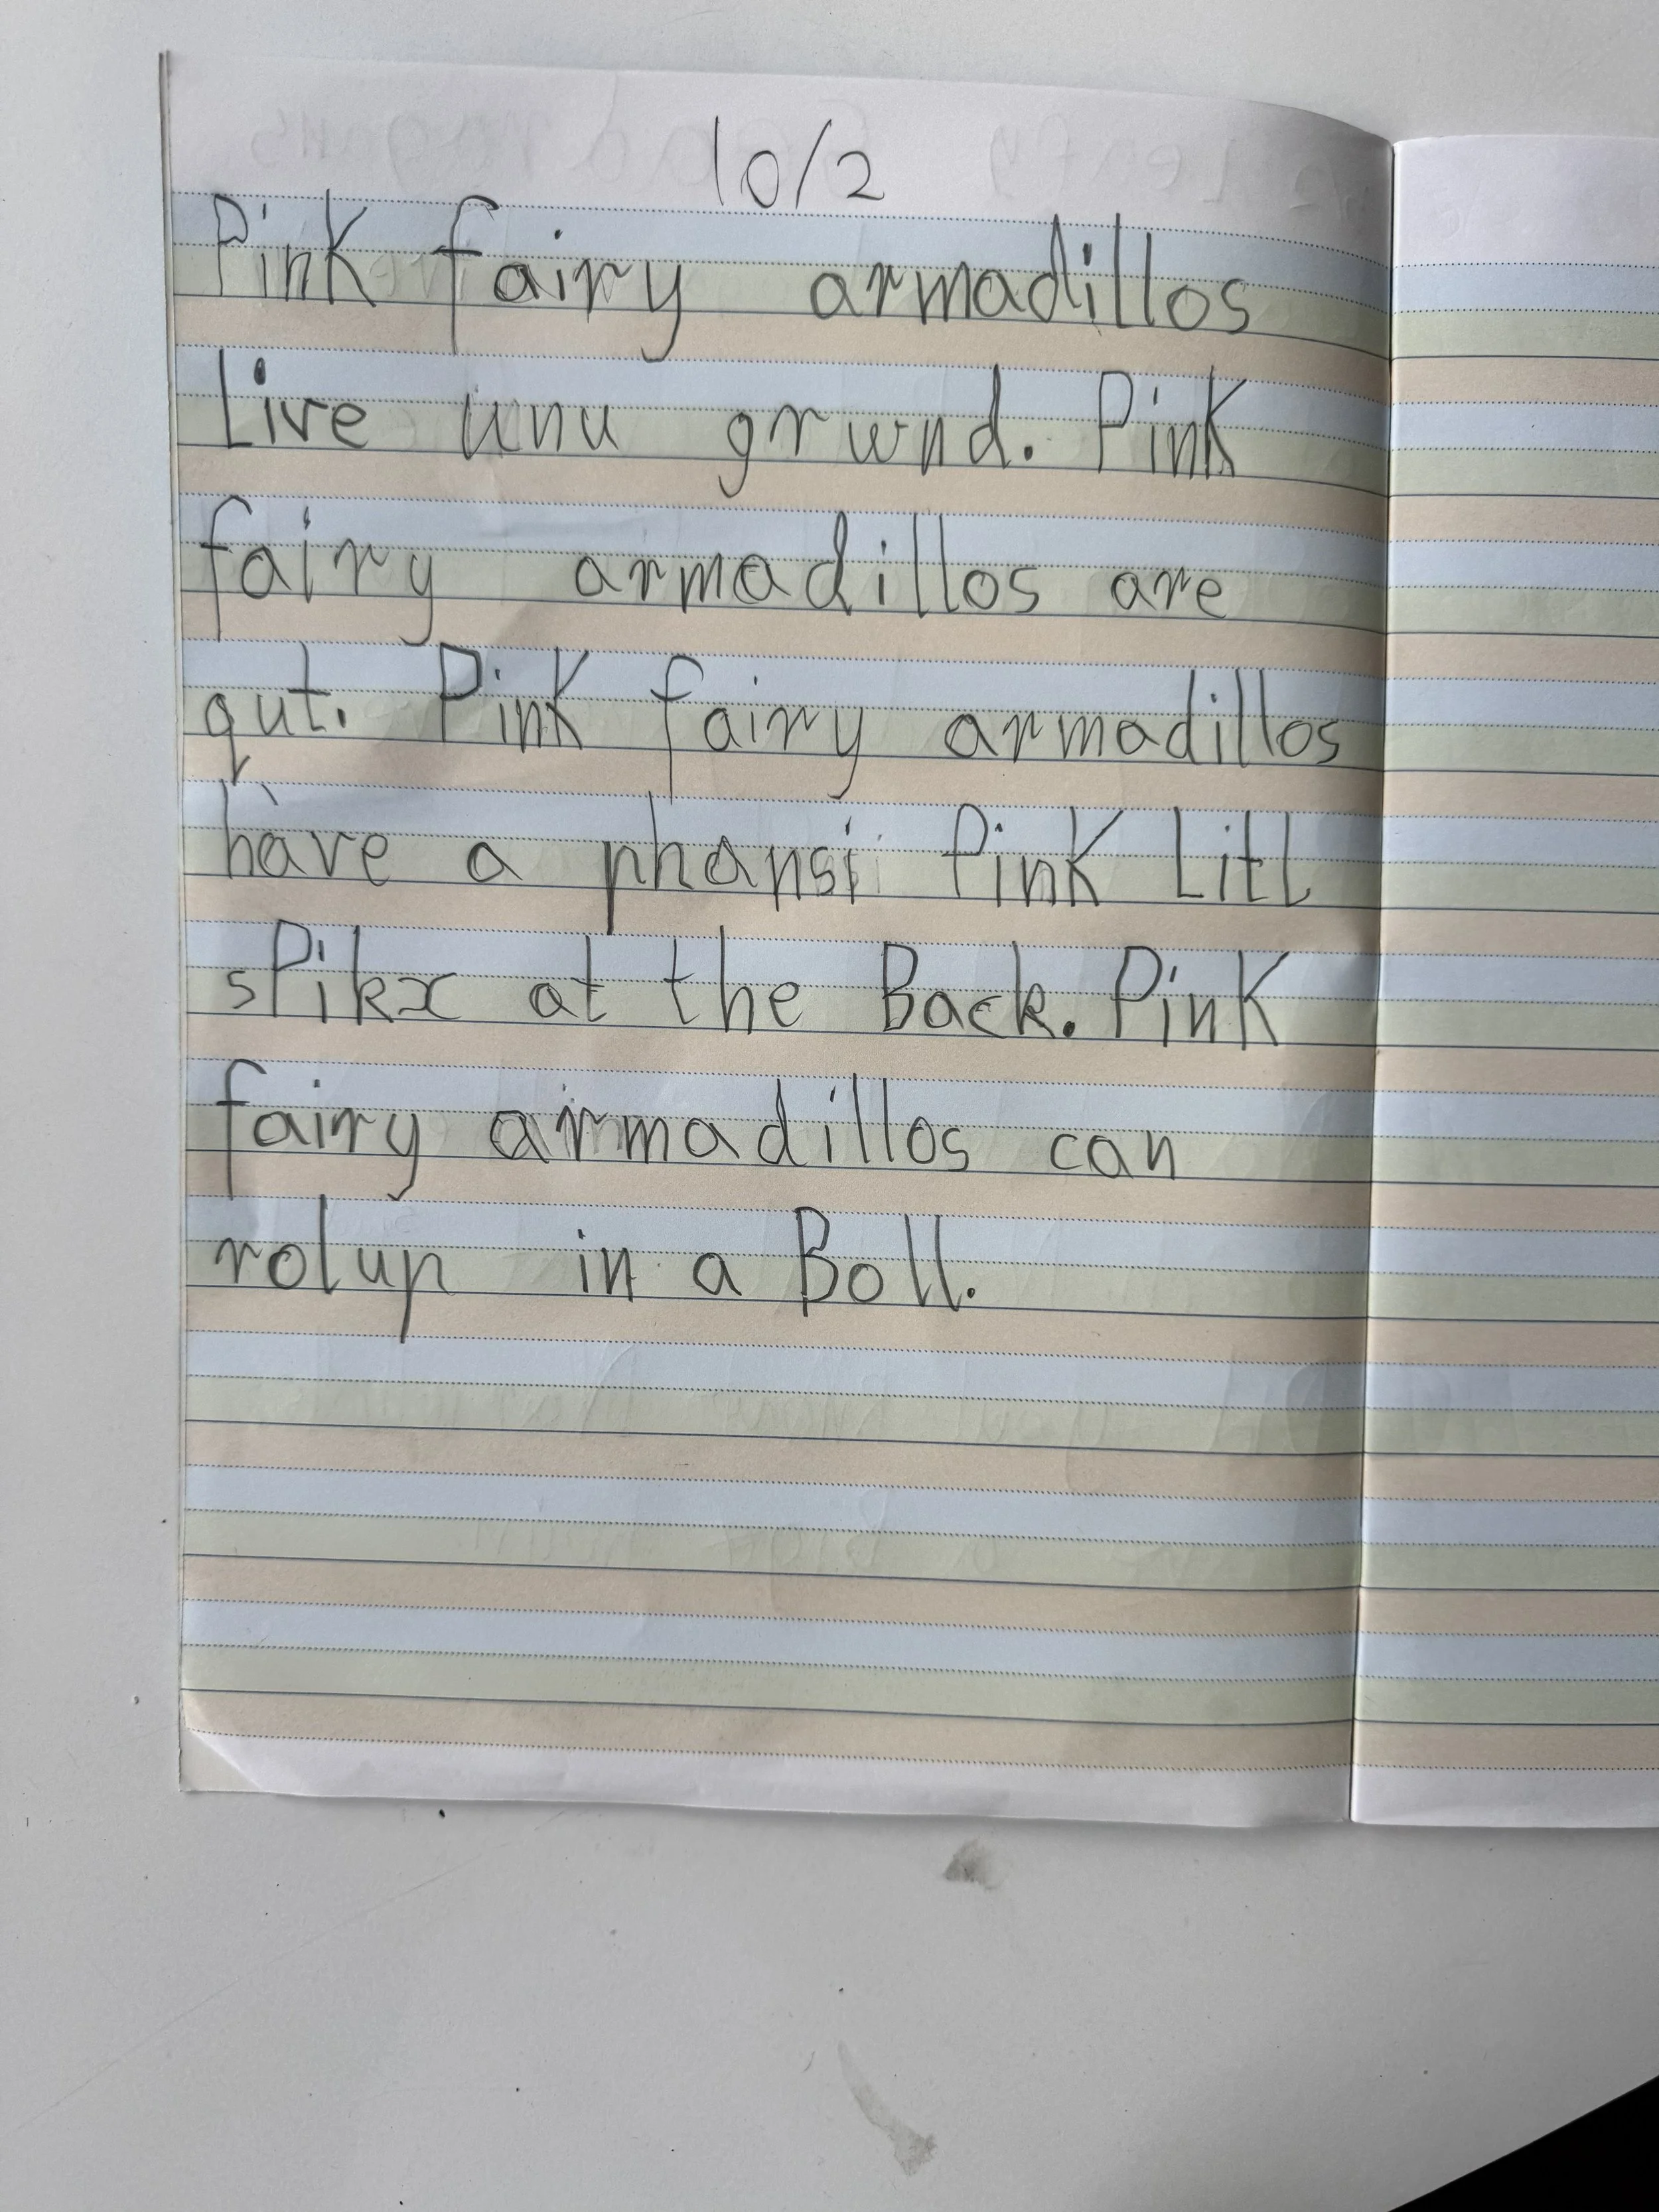 10/2
Pink fairy armadillos
Live unu grwnd. Pink
fairy armadillos are
qut. Pink fairy armadillos
have a phansi Pink Litl
sPikx at the Back. Pink
fairy armadillos can
rolup in a Boll.